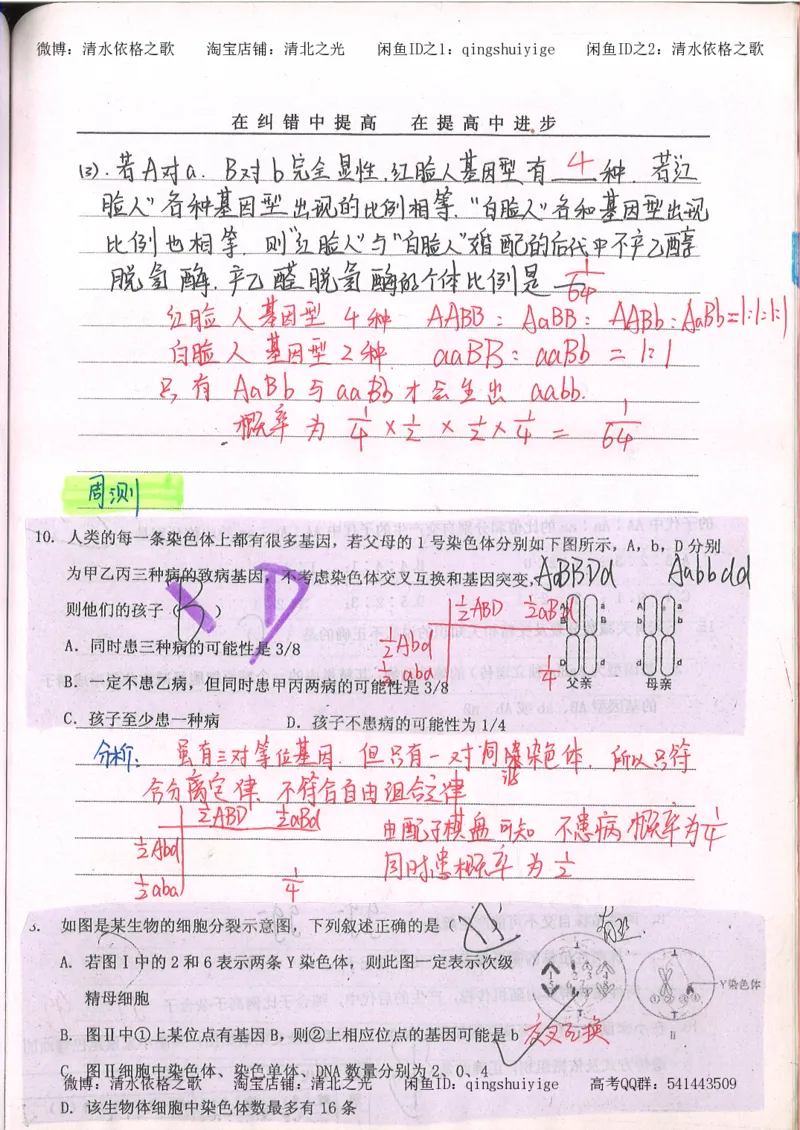 微博：清水依格之歌 淘宝店铺：清北之光 闲鱼ID之1：qingshuiyige 闲鱼ID之2：清水依格之歌
在纠错中提高 在提高中进步
(3).若A对a.B对b完全显性,红脸人基因型有 4 种.若红
脸人"各种基因型出现的比例相等."白脸人"各和基因型出现
比例也相等.则"红脸人"与"白脸人"婚配的后代中不产乙醇
脱氢酶.产乙醛脱氢酶的个体比例是 1/64
红脸人基因型4种 AABB：AaBB：AABb：AaBb=1:1:1:1
白脸人基因型2种 aaBB：aaBb=1:1
只有AaBb与aaBb才会生出aabb.
概率为 1/4×1/2×1/2×1/4=1/64
周测
10. 人类的每一条染色体上都有很多基因，若父母的1号染色体分别如下图所示，A，b，D分别
为甲乙丙三种病的致病基因，不考虑染色体交叉互换和基因突变，AaBBDd Aabbdd
则他们的孩子（B） D
1/2ABD 1/2aBd
1/2Abd
1/2aba 1/4
A a
B B
D d
父亲
A a
b b
d d
母亲
A. 同时患三种病的可能性是 3/8
B. 一定不患乙病，但同时患甲丙两病的可能性是 3/8
C. 孩子至少患一种病 D. 孩子不患病的可能性为 1/4
分析： 虽有三对等位基因.但只有一对同源染色体.所以只符
合分离定律.不符合自由组合定律
1/2ABD 1/2aBd
1/2Abd
1/2aba 1/4
由配子棋盘可知 不患病概率为1/4
同时患概率为1/2
3. 如图是某生物的细胞分裂示意图，下列叙述正确的是（ ）
A. 若图Ⅰ中的2和6表示两条Y染色体，则此图一定表示次级
精母细胞
B. 图Ⅱ中①上某位点有基因B，则②上相应位点的基因可能是b 交叉互换
C. 图Ⅱ细胞中染色体、染色单体、DNA数量分别为2、0、4
D. 该生物体细胞中染色体数最多有16条
Y染色体
Ⅱ
微博：清水依格之歌 淘宝店铺：清北之光 闲鱼ID：qingshuiyige 高考QQ群：541443509